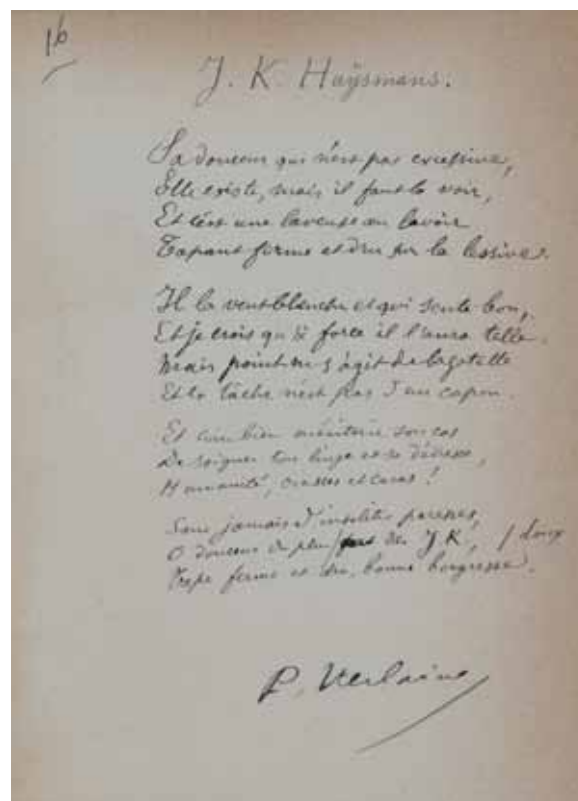 16
J. K. Huÿsmans.
Sa douceur qui n'est pas excessive,
Elle existe, mais il faut la voir,
Et c'est une laveuse au lavoir
Tapant ferme et dru sur la lessive.
Il la veut blanche et qui sente bon,
Et je crois qu'à force il l'aura telle.
Mais point ne s'agit de bagatelle
Et la tâche n'est pas d'un capon.
Et combien méritoire son cas
De soigner ton linge et sa détresse,
Humanité, crasses et cacas !
Sans jamais d'insolite paresse,
O douceur du plus des J. K., / doux
Tape ferme et dru, bonne bougresse.
P. Verlaine